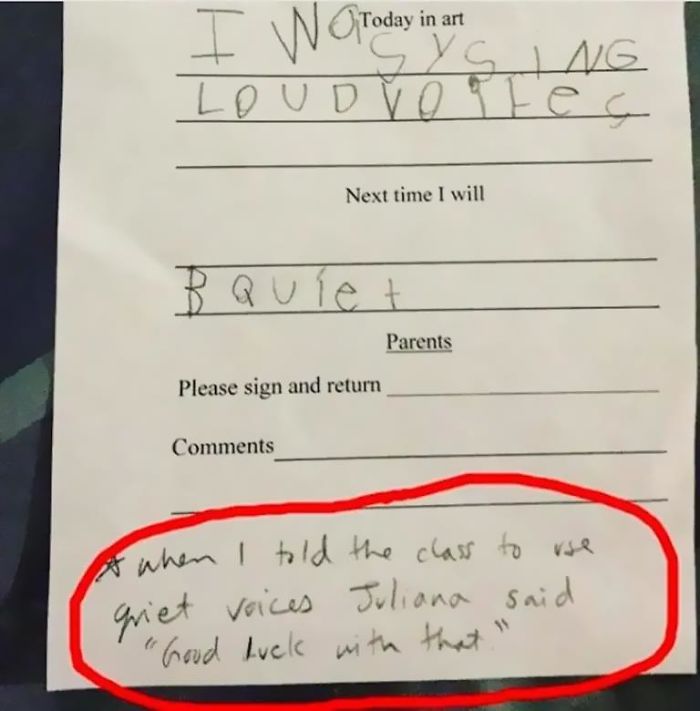 Today in art
I WaS YSING
LOUD VOIFec
Next time I will
B QUiet
Parents
Please sign and return
Comments
* when I told the class to use
quiet voices Juliana said
"Good luck with that."